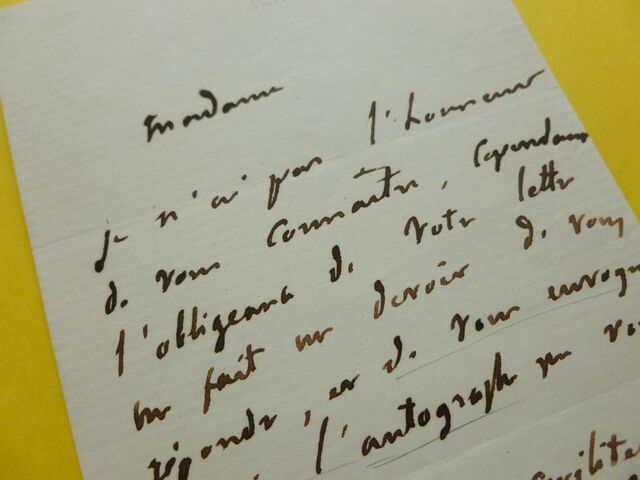 Madame
je n'ai pas l'honneur
de vous connaître, cependant
l'obligeance de votre lettre
me fait un devoir de vous
répondre, et de vous envoyer
l'autographe que vo